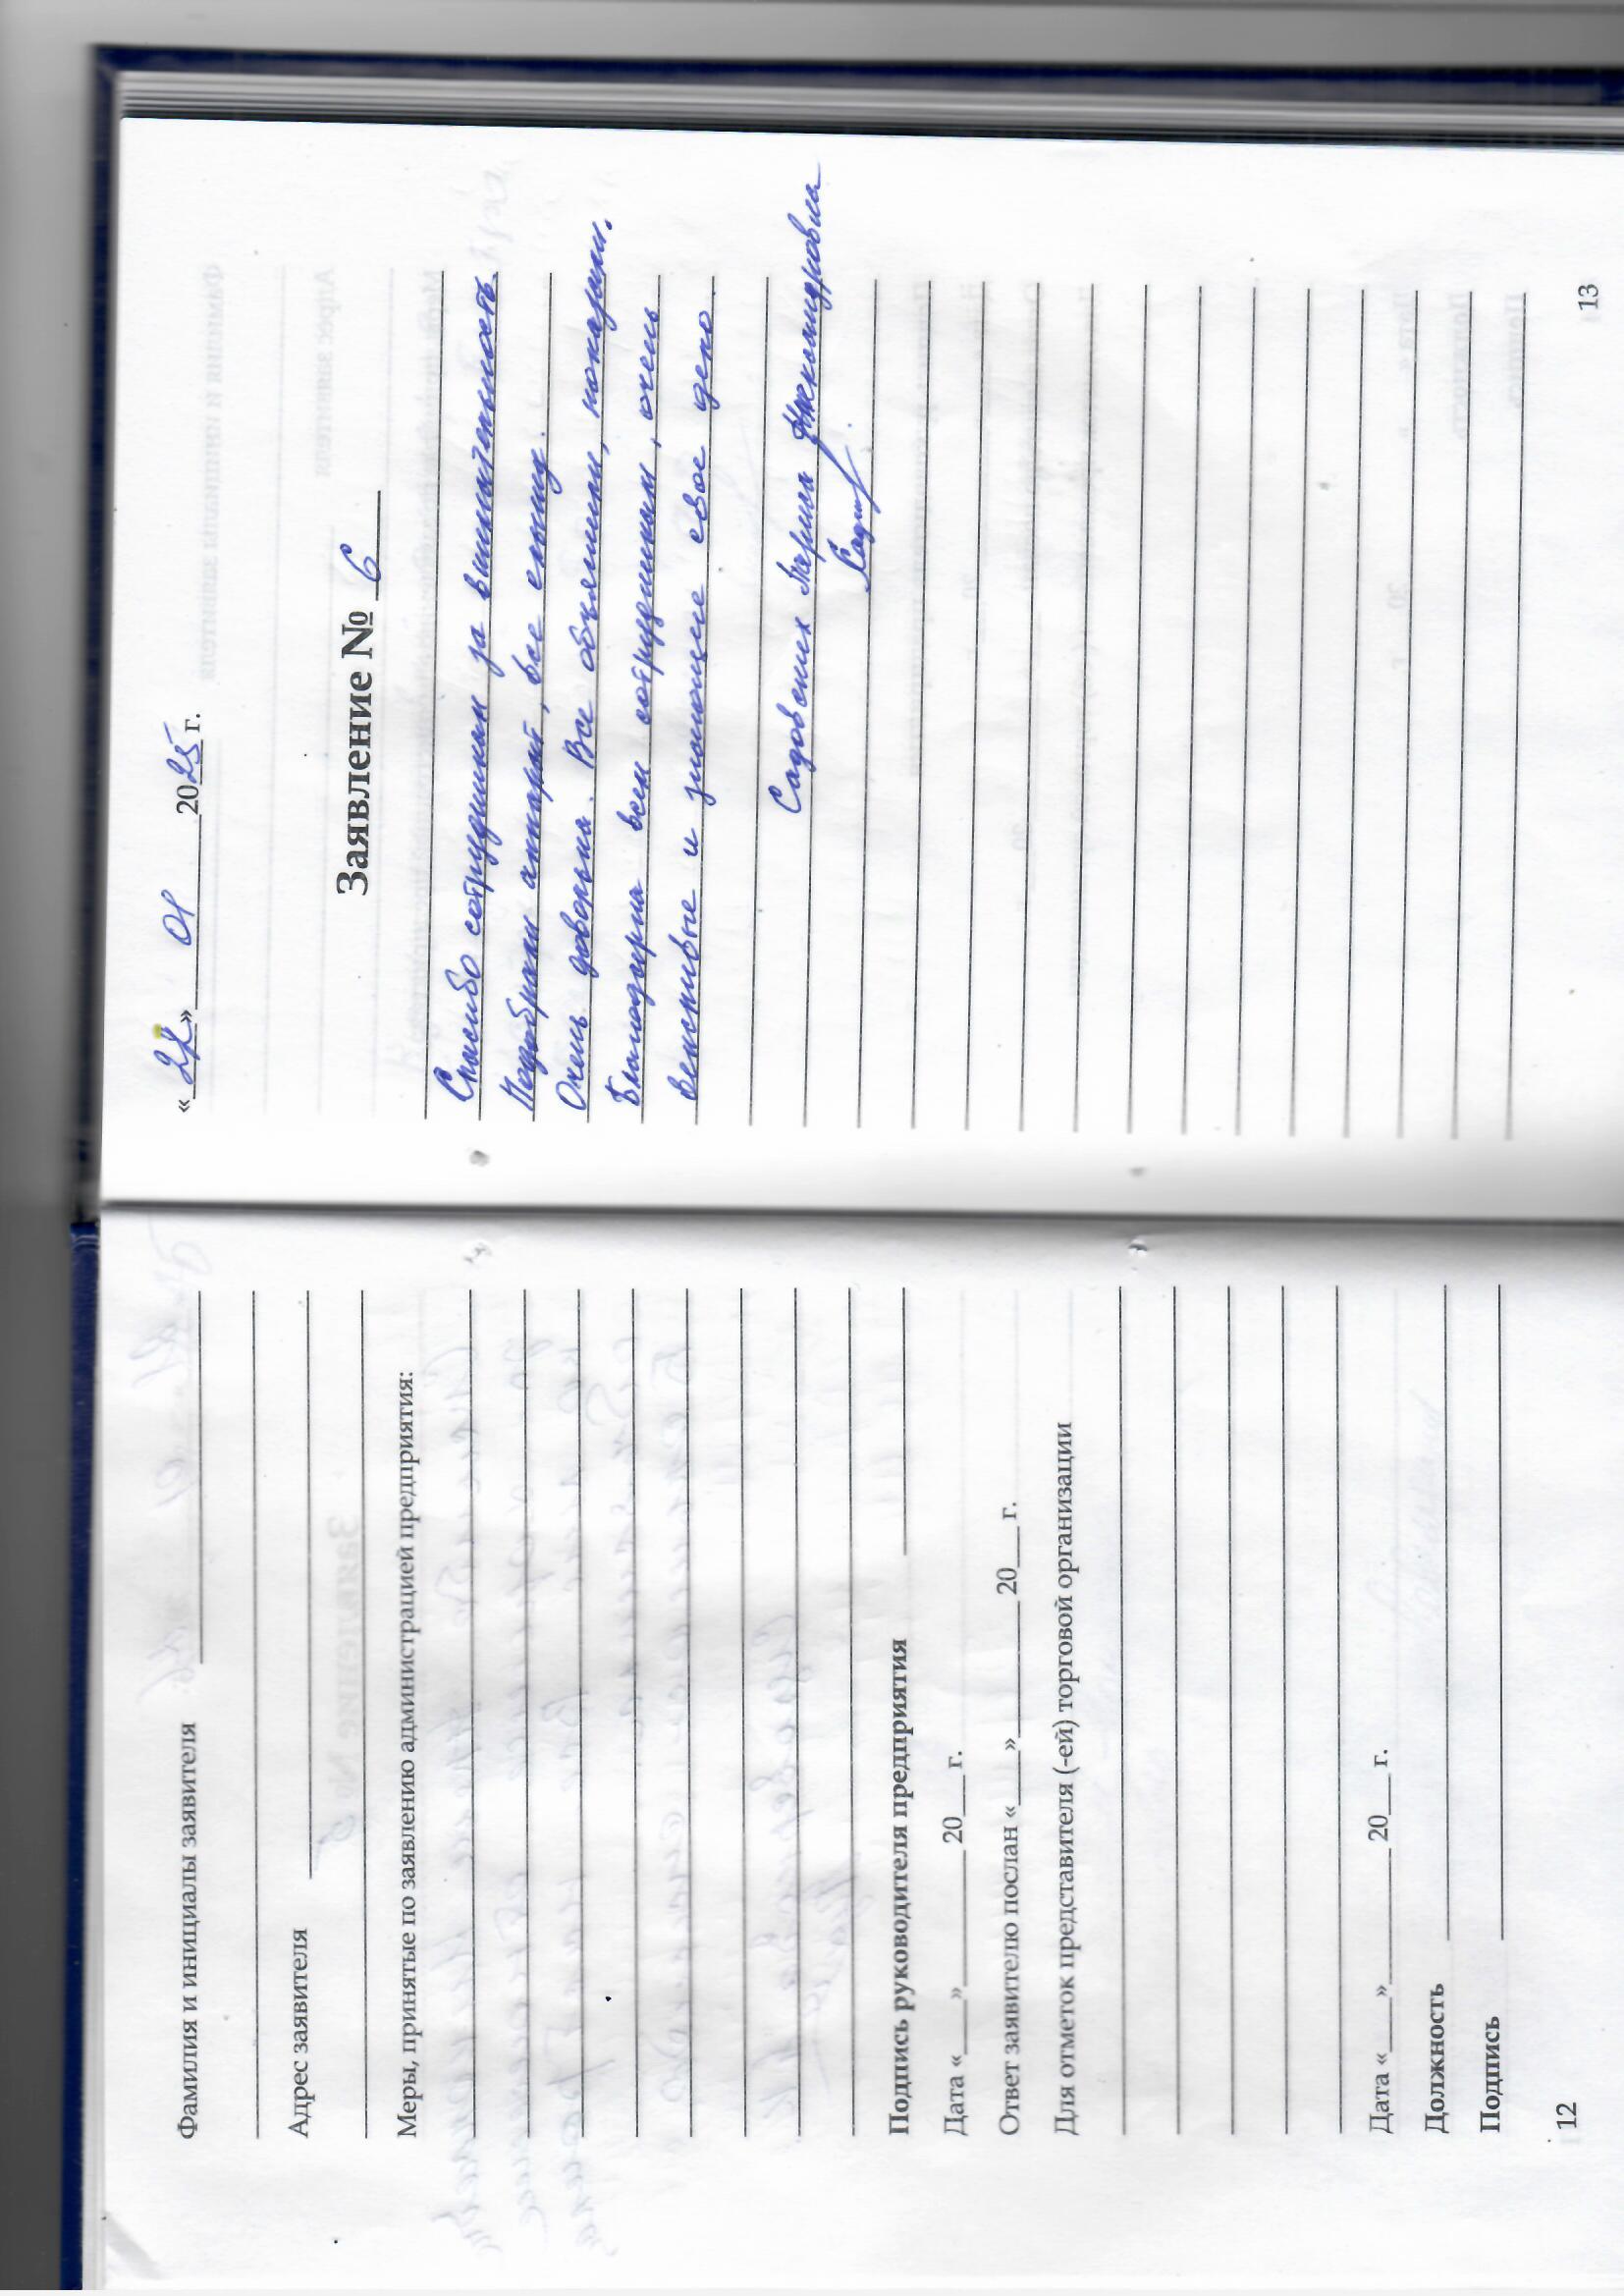 Фамилия и инициалы заявителя
Адрес заявителя
Меры, принятые по заявлению администрацией предприятия:
Подпись руководителя предприятия
Дата «___»________20___г.
Ответ заявителю послан «___»________20___г.
Для отметок представителя (-ей) торговой организации
Дата «___»________20___г.
Должность
Подпись
12
«22» 01 2025 г.
Заявление № 6
Спасибо сотрудникам за внимательность.
Подобрали аппарат, все слышу.
Очень довольна. Все объяснили, показали.
Благодарна всем сотрудникам, очень
вежливые и знающие свое дело.
Садовских Мария Александровна
13